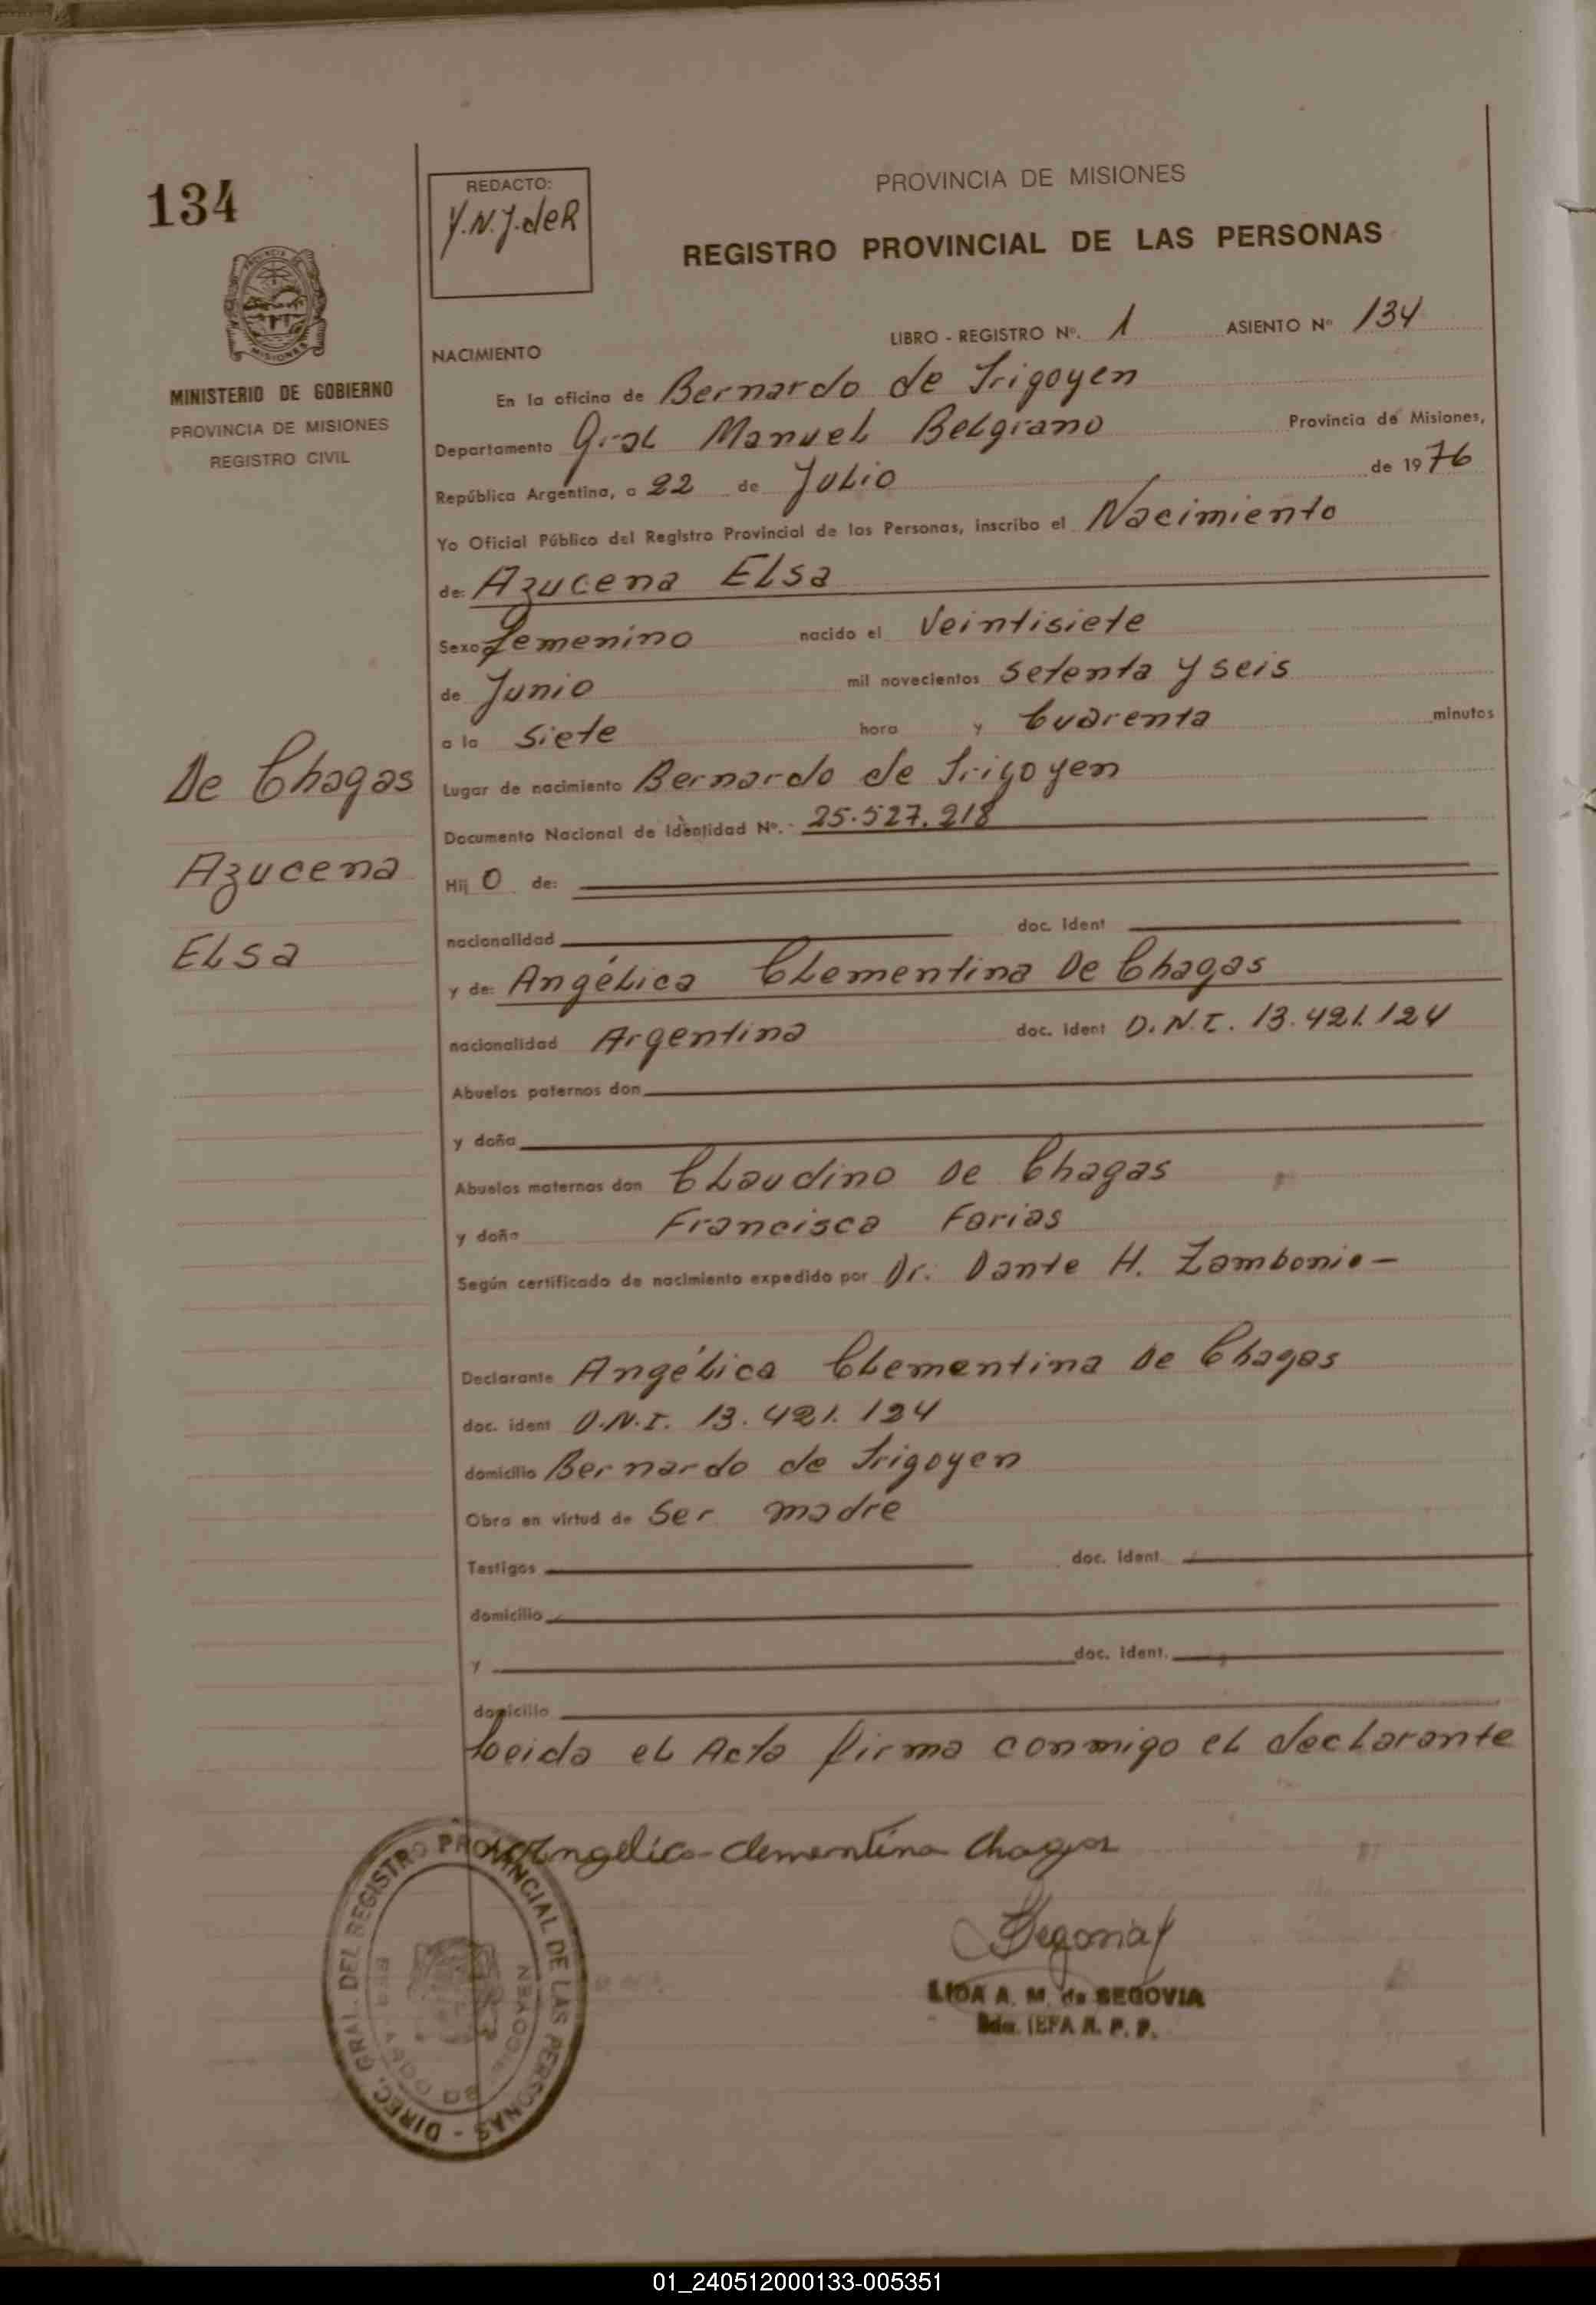 134
REDACTO:
Y.N.J.deR
PROVINCIA DE MISIONES
REGISTRO PROVINCIAL DE LAS PERSONAS
PROVINCIA DE
MISIONES
MINISTERIO DE GOBIERNO
PROVINCIA DE MISIONES
REGISTRO CIVIL
LIBRO - REGISTRO Nº. 1 ASIENTO Nº 134
NACIMIENTO
En la oficina de Bernardo de Irigoyen
Departamento Gral Manuel Belgrano Provincia de Misiones,
República Argentina, a 22 de Julio de 1976
Yo Oficial Público del Registro Provincial de las Personas, inscribo el Nacimiento
de: Azucena Elsa
Sexo femenino nacido el Veintisiete
de Junio mil novecientos setenta y seis
a la siete hora y Cuarenta minutos
Lugar de nacimiento Bernardo de Irigoyen
Documento Nacional de Identidad Nº. 25.527.218
Hij O de:
nacionalidad doc. ident
y de: Angélica Clementina De Chagas
nacionalidad Argentina doc. ident D.N.I. 13.421.124
Abuelos paternos don
y doña
Abuelos maternos don Claudino De Chagas
y doña Francisca Farias
Según certificado de nacimiento expedido por Dr. Dante H. Zambonio-
Declarante Angélica Clementina De Chagas
doc. ident D.N.I. 13.421.124
domicilio Bernardo de Irigoyen
Obra en virtud de Ser madre
Testigos doc. ident.
domicilio
y doc. ident.
domicilio
Leida el Acta firma conmigo el declarante
De Chagas
Azucena
Elsa
Angélica Clementina Chagas
Segovia
LIDA A. M. de SEGOVIA
JEFA R. P. P.
DIREC. GRAL. DEL REGISTRO PROVINCIAL DE LAS PERSONAS -
DE IRIGOYEN
01_240512000133-005351